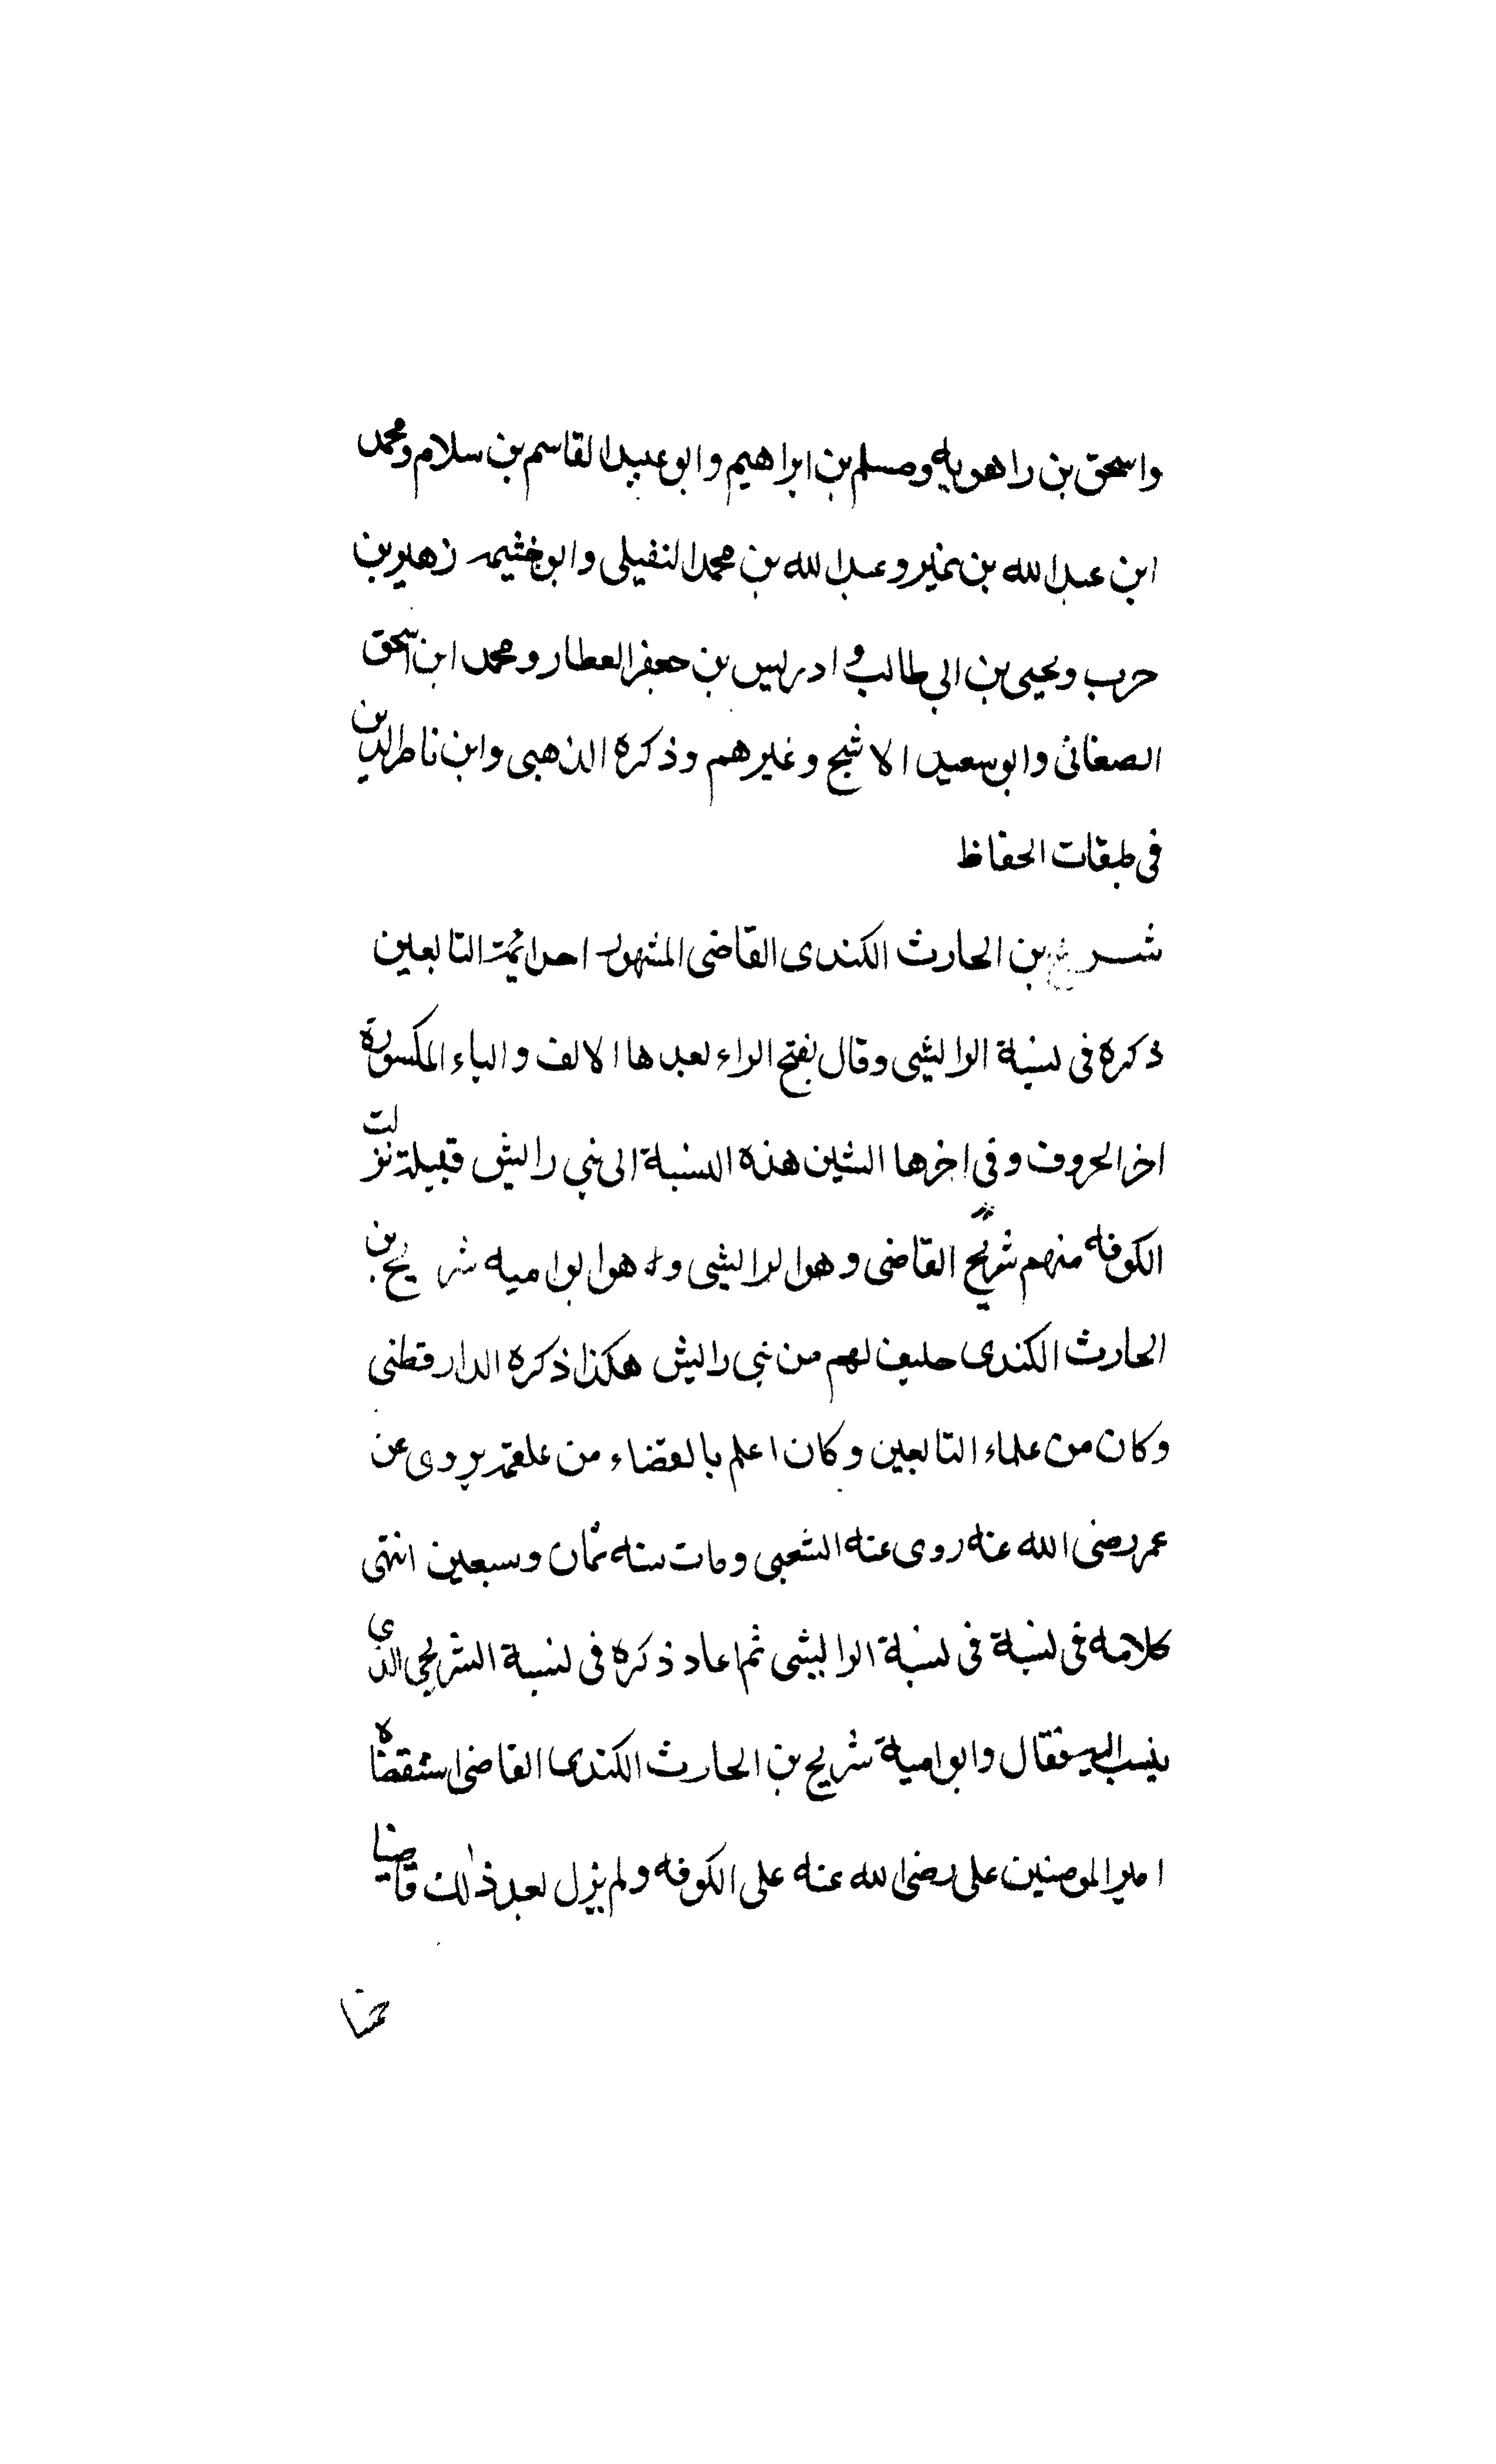 واسحق بن راهويه ومسلم بن ابراهيم وابو عبيد القاسم بن سلام ومحمد
ابن عبد الله بن نمير وعبد الله بن محمد النفيلى وابو خثيمه زهير بن
حرب ويحيى بن ابى طالب و ادريس بن جعفر العطار ومحمد ابن اسحق
الصغانى وابو سعيد الاشج وغيرهم وذكره الذهبى وابن ناطر الدين
فى طبقات الحفاظ
شريح بن الحارث الكندى القاضى المشهور احد ائمة التابعين
ذكره فى نسبة الرايشى وقال بفتح الراء بعدها الالف والياء المكسورة
اخر الحروف وفى اخرها الشين هذه النسبة الى بنى رايش قبيلة نزلت
الكوفه منهم شريح القاضى وهو الرايشى و هو ابو اميه شريح بن
الحارث الكندى حليف لهم من بنى رايش هكذا ذكره الدارقطنى
وكان من علماء التابعين وكان اعلم بالقضاء من علقمة يروى عن
عمر رضى الله عنه روى عنه الشعبى ومات سنه ثمان وسبعين انتهى
كلامه فى نسبة فى نسبة الرايشى ثم اعاد ذكره فى نسبة الشريحى الذى
ينسب اليه فقال وابو امية شريح بن الحارث الكندى القاضى استقضاه
امير المومنين على رضى الله عنه على الكوفه ولم يزل بعد ذلك قاضيا